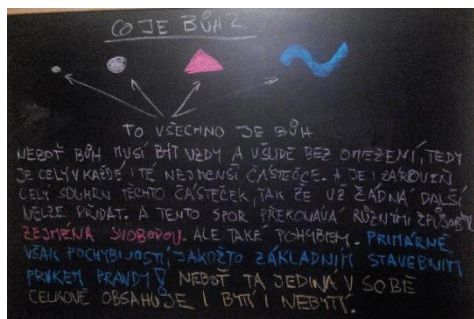 CO JE BŮH?
TO VŠECHNO JE BŮH
NEBOŤ BŮH MUSÍ BÝT VŽDY A VŠUDE BEZ OMEZENÍ, TEDY
JE CELÝ V KAŽDÉ I TÉ NEJMENŠÍ ČÁSTEČCE. A JE I ZÁROVEŇ
CELÝ SOUHRN TĚCHTO ČÁSTEČEK, TAK ŽE UŽ ŽÁDNÁ DALŠÍ
NELZE PŘIDAT. A TENTO SPOR PŘEKONÁVÁ RŮZNÝMI ZPŮSOBY
ZEJMÉNA SVOBODOU. ALE TAKÉ POHYBEM. PRIMÁRNĚ
VŠAK POCHYBNOSTÍ, JAKOŽTO ZÁKLADNÍM STAVEBNÍM
PRVKEM PRAVDY! NEBOŤ TA JEDINÁ V SOBĚ
CELKOVĚ OBSAHUJE I BYTÍ I NEBYTÍ.